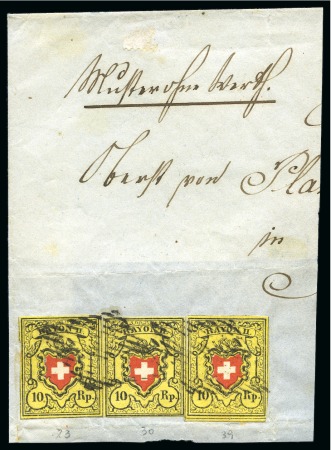 Muster ohne Werth.
Oberst von Pla
in
RAYON II RAYON II RAYON II
10 Rp. 10 Rp. 10 Rp.
23 30 39